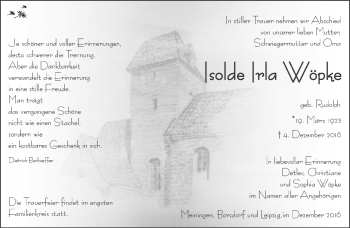 Je schöner und voller Erinnerungen,
desto schwerer die Trennung.
Aber die Dankbarkeit
verwandelt die Erinnerung
in eine stille Freude.
Man trägt
das vergangene Schöne
nicht wie einen Stachel,
sondern wie
ein kostbares Geschenk in sich.
Dietrich Bonhoeffer
Die Trauerfeier findet im engsten
Familienkreis statt.
In stiller Trauer nehmen wir Abschied
von unserer lieben Mutter,
Schwiegermutter und Oma
Isolde Irla Wöpke
geb. Rudolph
* 19. März 1923
† 4. Dezember 2016
In liebevoller Erinnerung
Detlev, Christiane
und Sophia Wöpke
im Namen aller Angehörigen
Meiningen, Borsdorf und Leipzig, im Dezember 2016